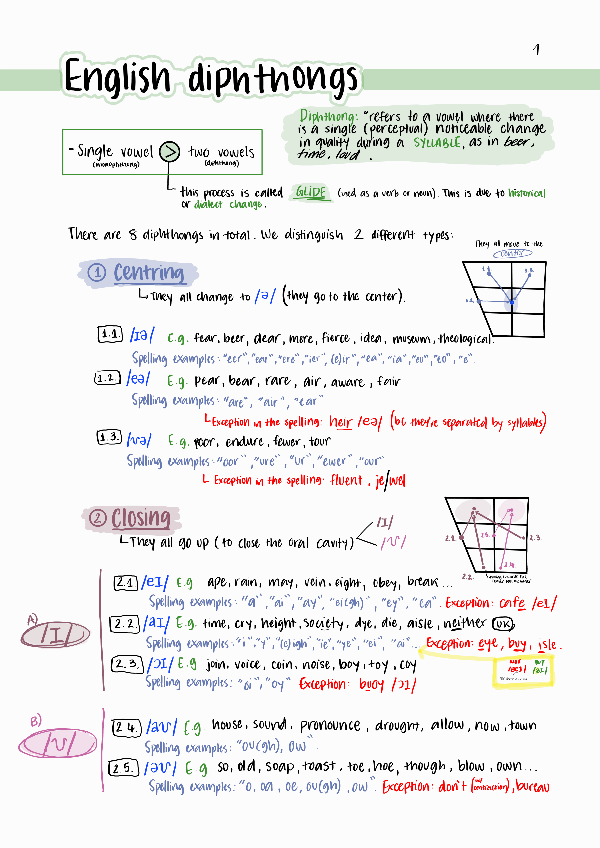 1
English diphthongs
Diphthong: "refers to a vowel where there
is a single (perceptual) noticeable change
in quality during a SYLLABLE, as in beer,
time, loud".
- Single vowel > two vowels
(monophthong) (diphthong)
this process is called GLIDE (used as a verb or noun). This is due to historical
or dialect change.
There are 8 diphthongs in total. We distinguish 2 different types:
They all move to the
centre
① Centring
They all change to /ə/ (they go to the center).
1.1. /ɪə/ E.g. fear, beer, dear, mere, fierce, idea, museum, theological.
Spelling examples: "eer", "ear", "ere", "ier", (e)ir", "ea", "ia", "eu", "eo", "e".
1.2. /eə/ E.g. pear, bear, rare, air, aware, fair
Spelling examples: "are", "air", "ear"
Exception in the spelling: heir /eə/ (bc they're separated by syllables)
1.3. /ʊə/ E.g. poor, endure, fewer, tour
Spelling examples: "oor", "ure", "ur", "ewer", "our"
Exception in the spelling: fluent, je/wel
② Closing
They all go up (to close the oral cavity)
/ɪ/
/ʊ/
2.1. 2.5. 2.3.
2.4.
2.2.
A) /ɪ/
2.1 /eɪ/ E.g ape, rain, may, vein, eight, obey, break...
Spelling examples: "a", "ai", "ay", "ei(gh)", "ey", "ea". Exception: cafe /eɪ/
2.2. /aɪ/ E.g. time, cry, height, society, dye, die, aisle, neither (UK)
Spelling examples: "i", "y", "(e)igh", "ie", "ye", "ei", "ai"... Exception: eye, buy, isle.
2.3. /ɔɪ/ E.g join, voice, coin, noise, boy, toy, coy
Spelling examples: "oi", "oy" Exception: buoy /ɔɪ/
B) /ʊ/
2.4. /aʊ/ E.g house, sound, pronounce, drought, allow, now, town
Spelling examples: "ou(gh), ow".
2.5. /əʊ/ E.g so, old, soap, toast, toe, hoe, though, blow, own...
Spelling examples: "o, oa, oe, ou(gh), ow". Exception: don't (contraction), bureau